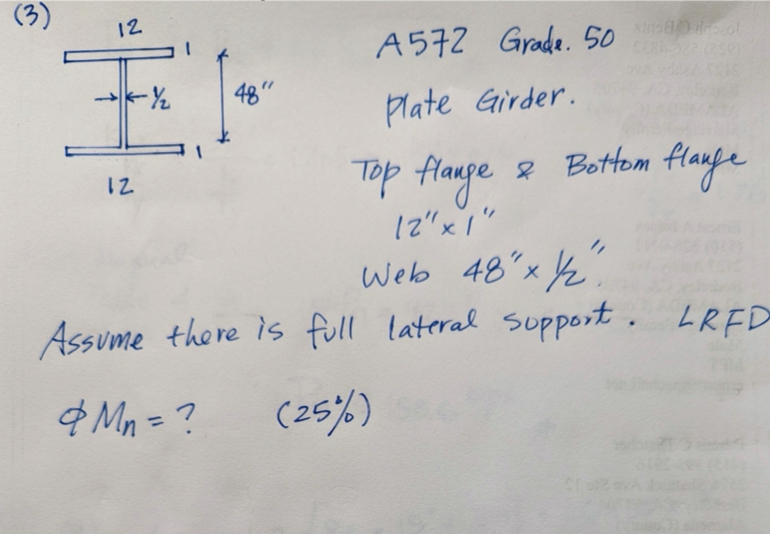 (3)
12
1
1/2
48"
1
12
A572 Grade. 50
Plate Girder.
Top flange & Bottom flange
12" x 1"
Web 48" x 1/2".
Assume there is full lateral support. LRFD
ϕMn = ? (25%)